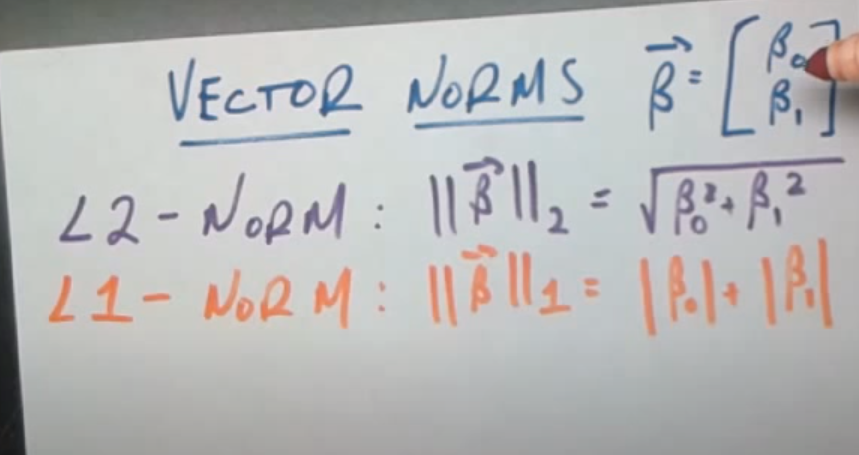 VECTOR NORMS β⃗ = [β₀ β₁]
L2 - NORM : ||β⃗||₂ = √(β₀² + β₁²)
L1 - NORM : ||β⃗||₁ = |β₀| + |β₁|